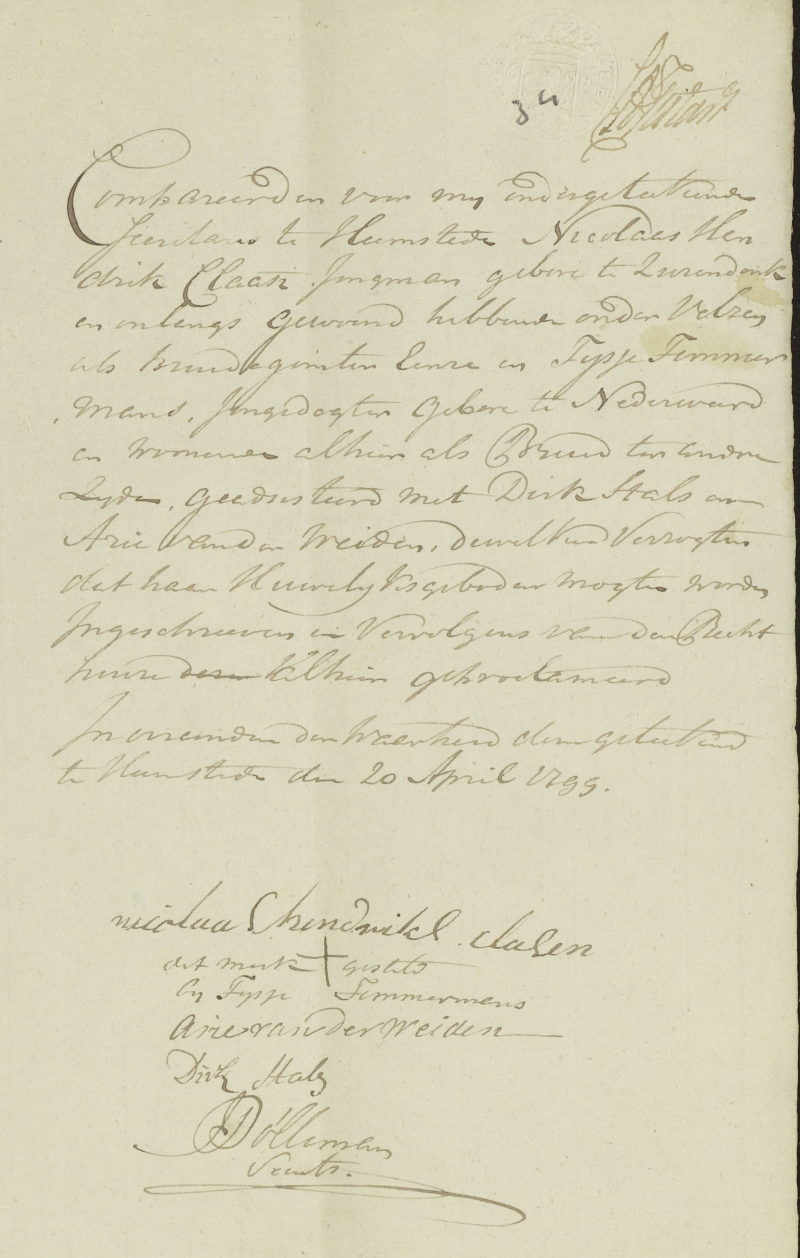 3 "
Compareerden voor my ondergeteekende
Secretaris te Heemstede Nicolaas Hen
drik Claasz Jongman gebore te
en onlangs gewoond hebbende onder Velzen
als bruidegom ter Eenre en Fysje Temmer
mans, Jongedogter gebore te Nederweerd
en woonende alhier als Bruid ter andre
Zyde, geadsisteerd met Dirk Stals en
Arie van der Weiden, dewelken Verzogten
dat haar Huwelyksgeboden mogten worden
Ingeschreeven en Vervolgens van den Recht
huize alhier geproclameerd
In oirconden der Waarheid dezen geteekend
te Heemstede den 20 April 1799.
nicolaas hendrikS claSen
dit merk + gestelt
by Fysje Temmermans
Arie van Der Weiden
Dirk Stals
Dólleman
Secrets.